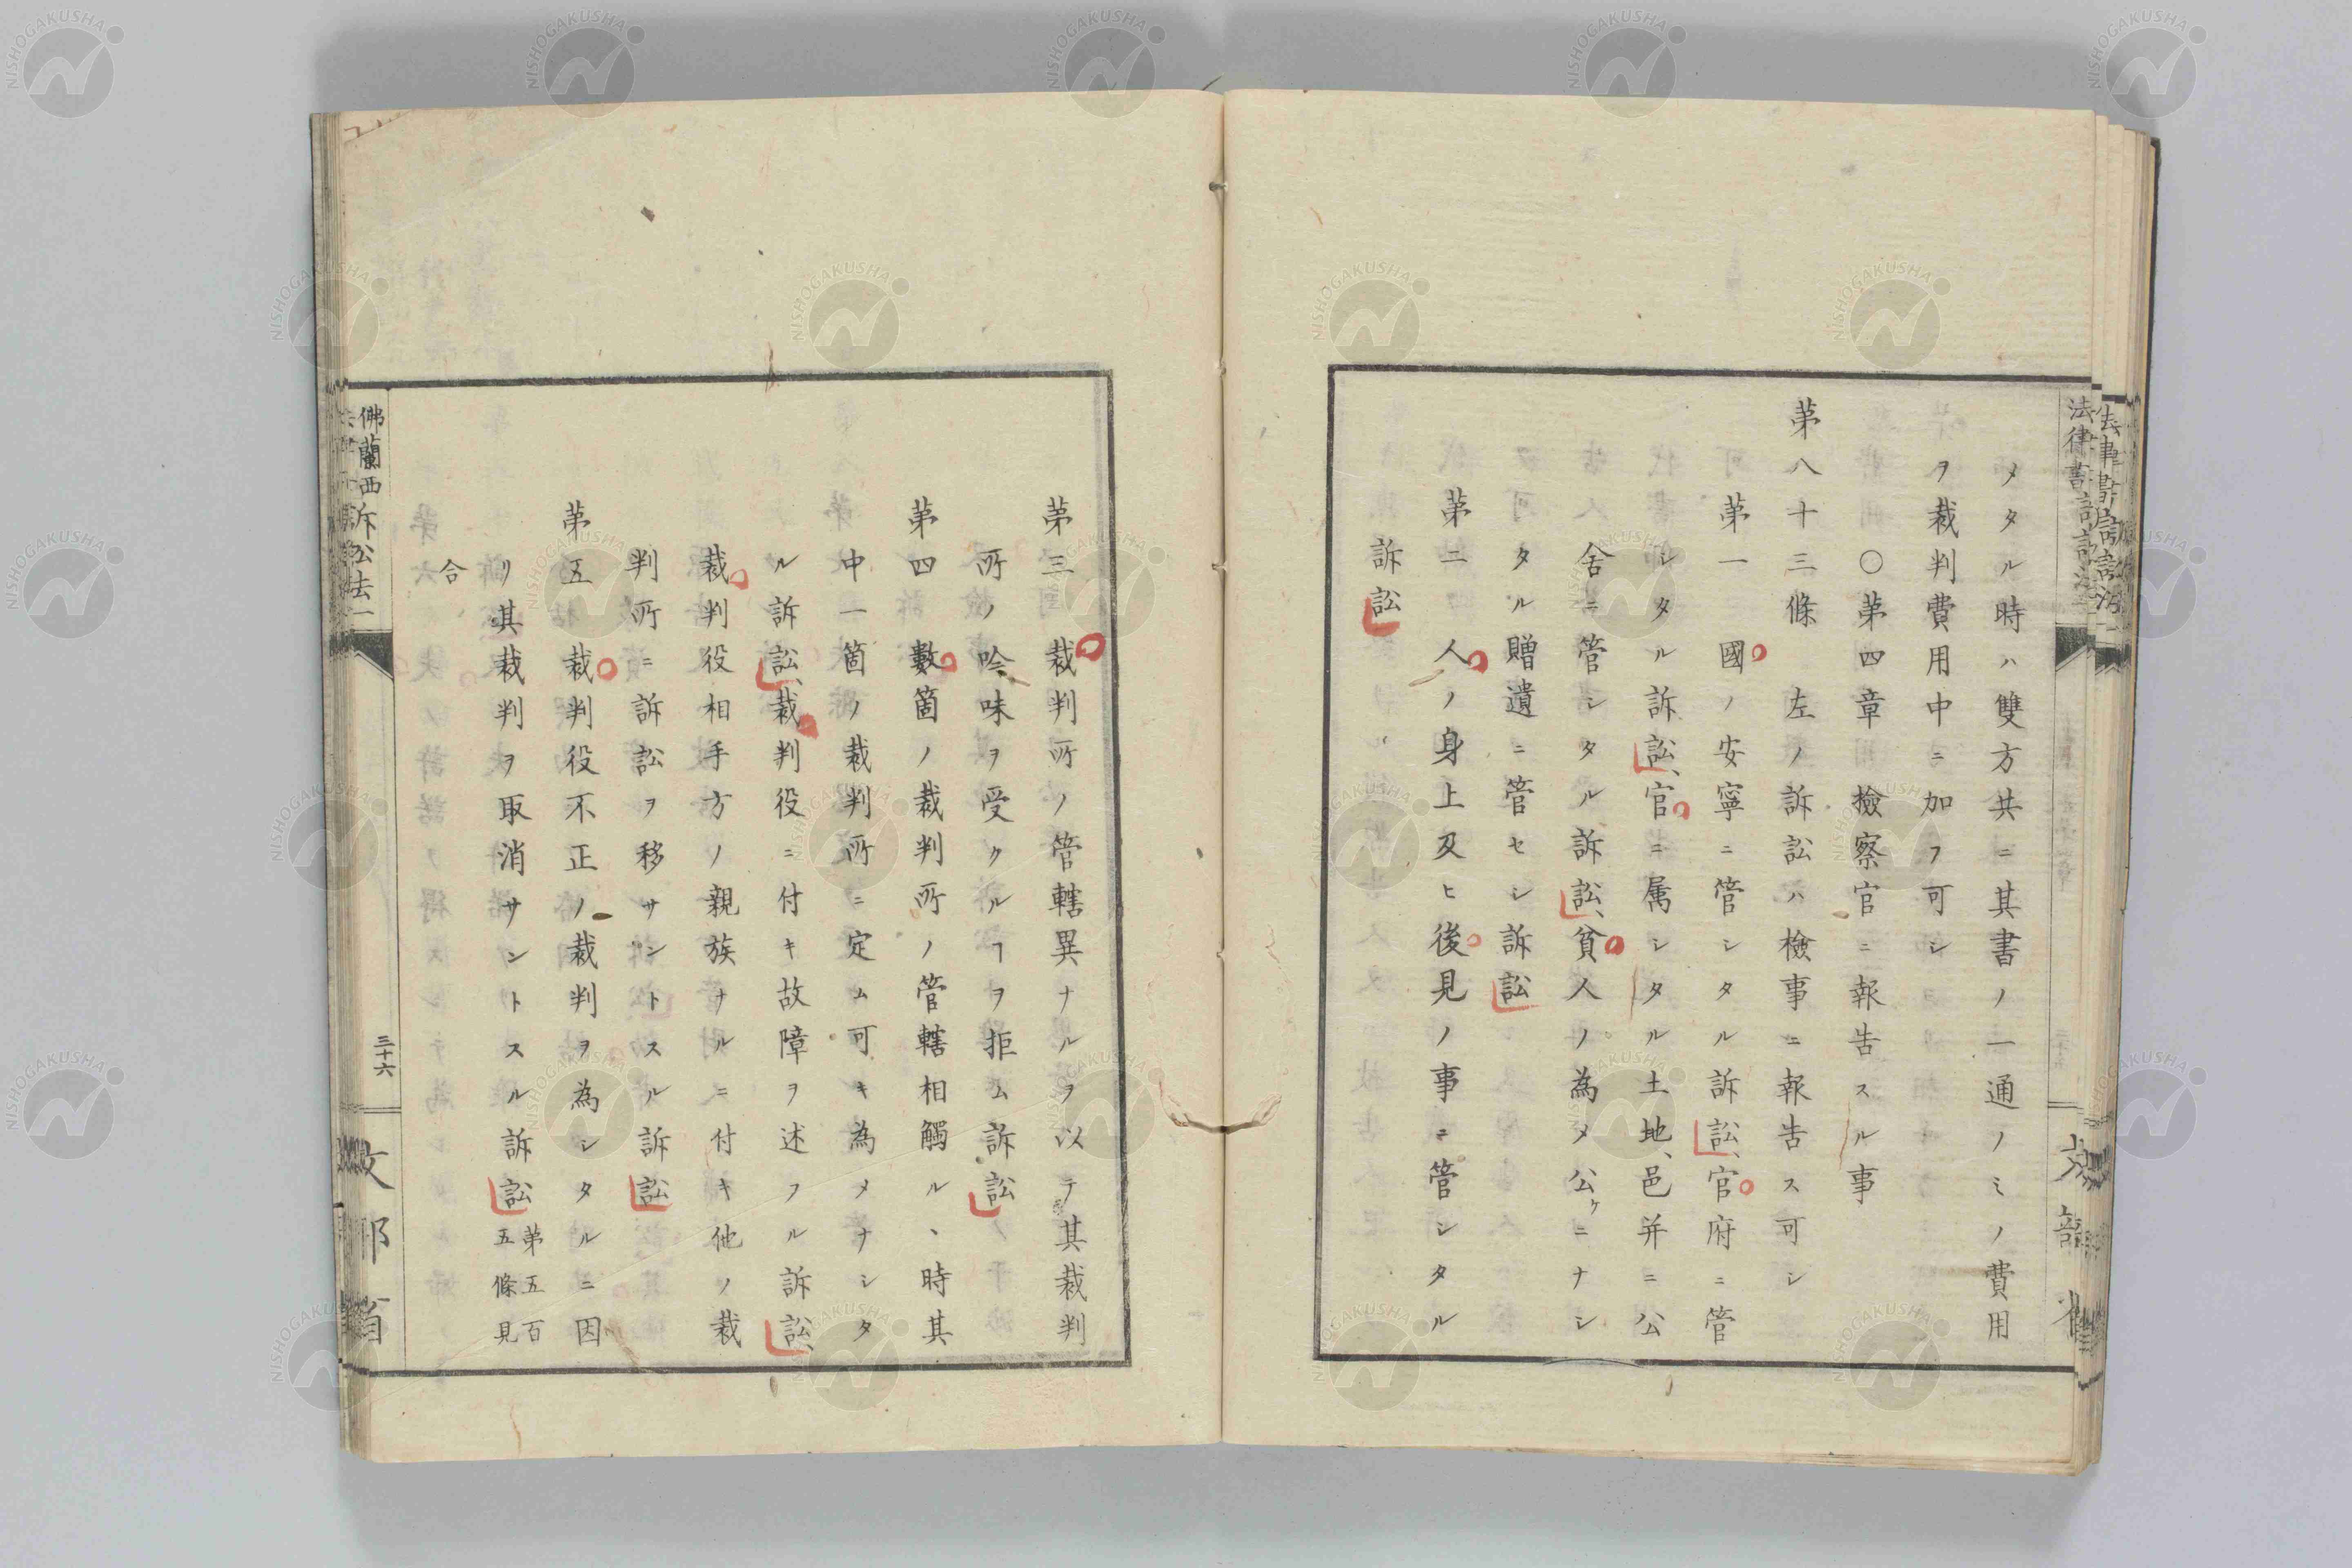 メタル時ハ雙方共ニ其書ノ一通ノミノ費用
ヲ裁判費用中ニ加フ可シ
○第四章 撿察官ニ報告スル事
第八十三條 左ノ訴訟ハ檢事ニ報告ス可シ
第一 國ノ安寧ニ管シタル訴訟、官府ニ管
シタル訴訟、官ニ属シタル土地、邑并ニ公
舍ニ管シタル訴訟、貧人ノ為メ公ケニナシ
タル贈遺ニ管セシ訴訟
第二 人ノ身上及ヒ後見ノ事ニ管シタル
訴訟
第三 裁判所ノ管轄異ナルヲ以テ其裁判
所ノ吟味ヲ受クルヿヲ拒ム訴訟
第四 數箇ノ裁判所ノ管轄相觸ルヽ時其
中一箇ノ裁判所ニ定ム可キ為メナシタ
ル訴訟、裁判役ニ付キ故障ヲ述フル訴訟、
裁判役相手方ノ親族ナルニ付キ他ノ裁
判所ニ訴訟ヲ移サントスル訴訟
第五 裁判役不正ノ裁判ヲ為シタルニ因
リ其裁判ヲ取消サントスル訴訟 第五百五條見
合
佛蘭西訴訟法一
三十六
文部省